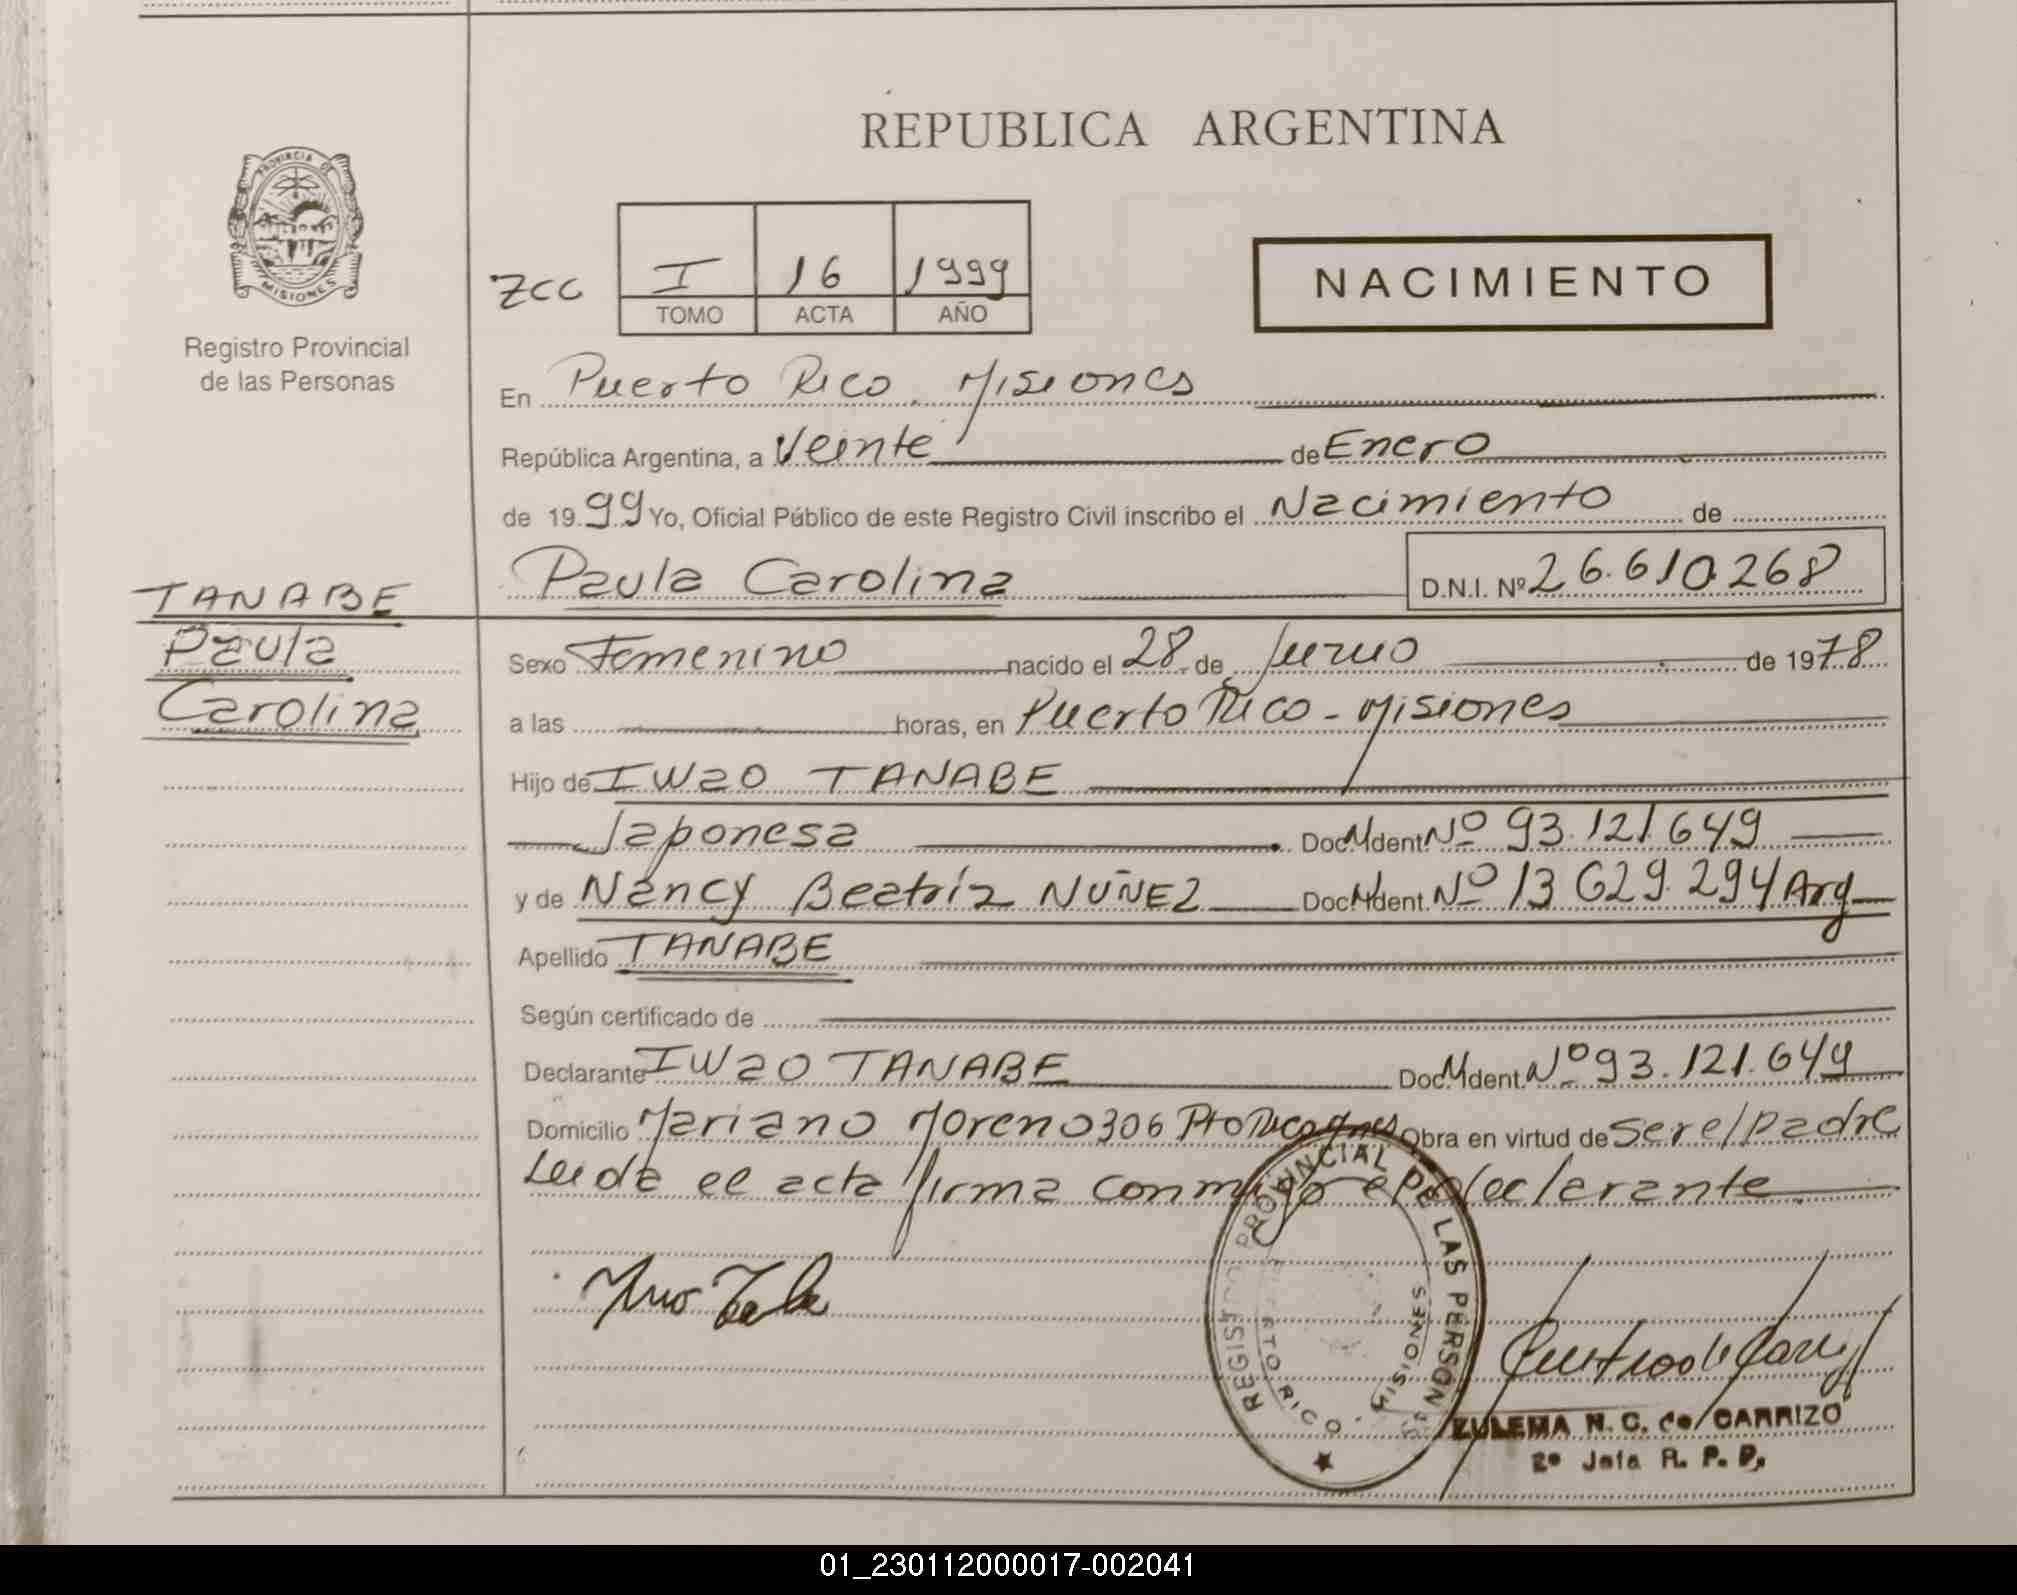 REPUBLICA ARGENTINA
PROVINCIA DE
MISIONES
Registro Provincial
de las Personas
ZCC
I 16 1999
TOMO ACTA AÑO
NACIMIENTO
En Puerto Rico. Misiones
República Argentina, a Veinte de Enero
de 1999 Yo, Oficial Público de este Registro Civil inscribo el Nacimiento de
Paula Carolina D.N.I. Nº 26.610.268
TANABE
Paula
Carolina
Sexo Femenino nacido el 28 de Junio de 1978
a las horas, en Puerto Rico - Misiones
Hijo de IWao TANABE
Japonesa Doc. Ident Nº 93.121.649
y de Nancy Beatríz NUÑEZ Doc. Ident. Nº 13 629.294 Arg
Apellido TANABE
Según certificado de
Declarante IWao TANABE Doc. Ident. Nº 93.121.649
Domicilio Mariano Moreno 306 Pto Rico Mnes Obra en virtud de ser el padre
Leida el acta firma conmigo el declarante.
REGISTRO PROVINCIAL DE LAS PERSONAS
PUERTO RICO - MISIONES
ZULEMA N. C. de CARRIZO
2º Jefa R. P. P.
01_230112000017-002041